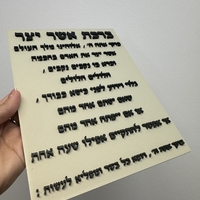 ברכת אשר יצר
ברוך אתה ה', אלוהינו מלך העולם
אשר יצר את האדם בחכמה
וברא בו נקבים נקבים,
חלולים חלולים
גלוי וידוע לפני כסא כבודך,
שאם יסתם אחד מהם
או אם יפתח אחד מהם
אי אפשר להתקיים אפילו שעה אחת
ברוך אתה ה', רופא כל בשר ומפליא לעשות: